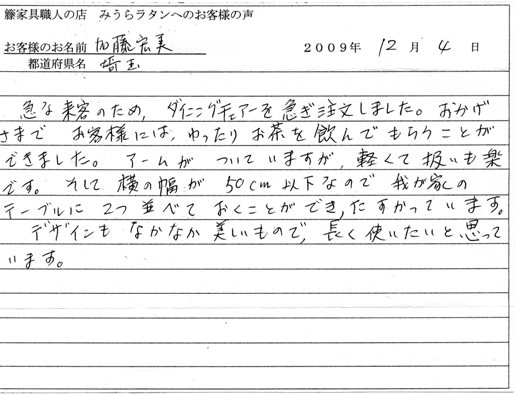 籐家具職人の店　みうらラタンへのお客様の声
お客様のお名前 加藤宏美 2009年 12月 4日
都道府県名 埼玉
急な来客のため、ダイニングチェアーを急ぎ注文しました。おかげ
さまで お客様には、ゆったりお茶を飲んでもらうことが
できました。アームがついていますが、軽くて扱いも楽
です。そして横の幅が 50cm以下なので 我が家の
テーブルに 2つ並べておくことができ、たすかっています。
デザインもなかなか美しいもので、長く使いたいと思って
います。